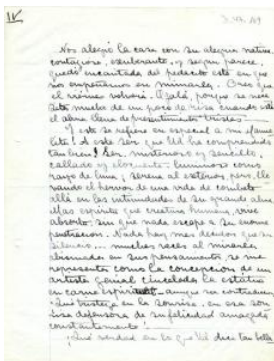 IV
Nos alegró la casa con su alegría nativa,
contagiosa, exuberante, y según parece,
quedó encantada del pedacito este en que
nos empeñamos en mimarla. Creo que
el volverá. Ojalá, porque se nece-
sita mucho de un poco de risa cuando está
el alma llena de presentimientos tristes.-
Y esto se refiere en especial a mi Mamá
¡A este ser que Ud. ha comprendido
tan bien! Ser, misterioso y sencillo,
callado y elocuente; luminoso como
rayo de luna; serena al exterior, pero lle-
vando el hervor de una vida de combate
allá en las intimidades de su grande alma.
Mas espíritu que creatura humana, vive
absorto, sin que nada escape a su enorme
penetración. Nada hay más decidor que su
silencio.... muchas veces al mirarla
abismada en sus pensamientos, se me
representa como la concepción de un
artista genial cincelada la estatua
en carne espiritual - aunque sea contradicción.
¡Qué tristeza en la sonrisa, en esa son-
risa defensora de su felicidad amagada
constantemente!
¡Qué verdad en lo que Ud. dice tan bella-